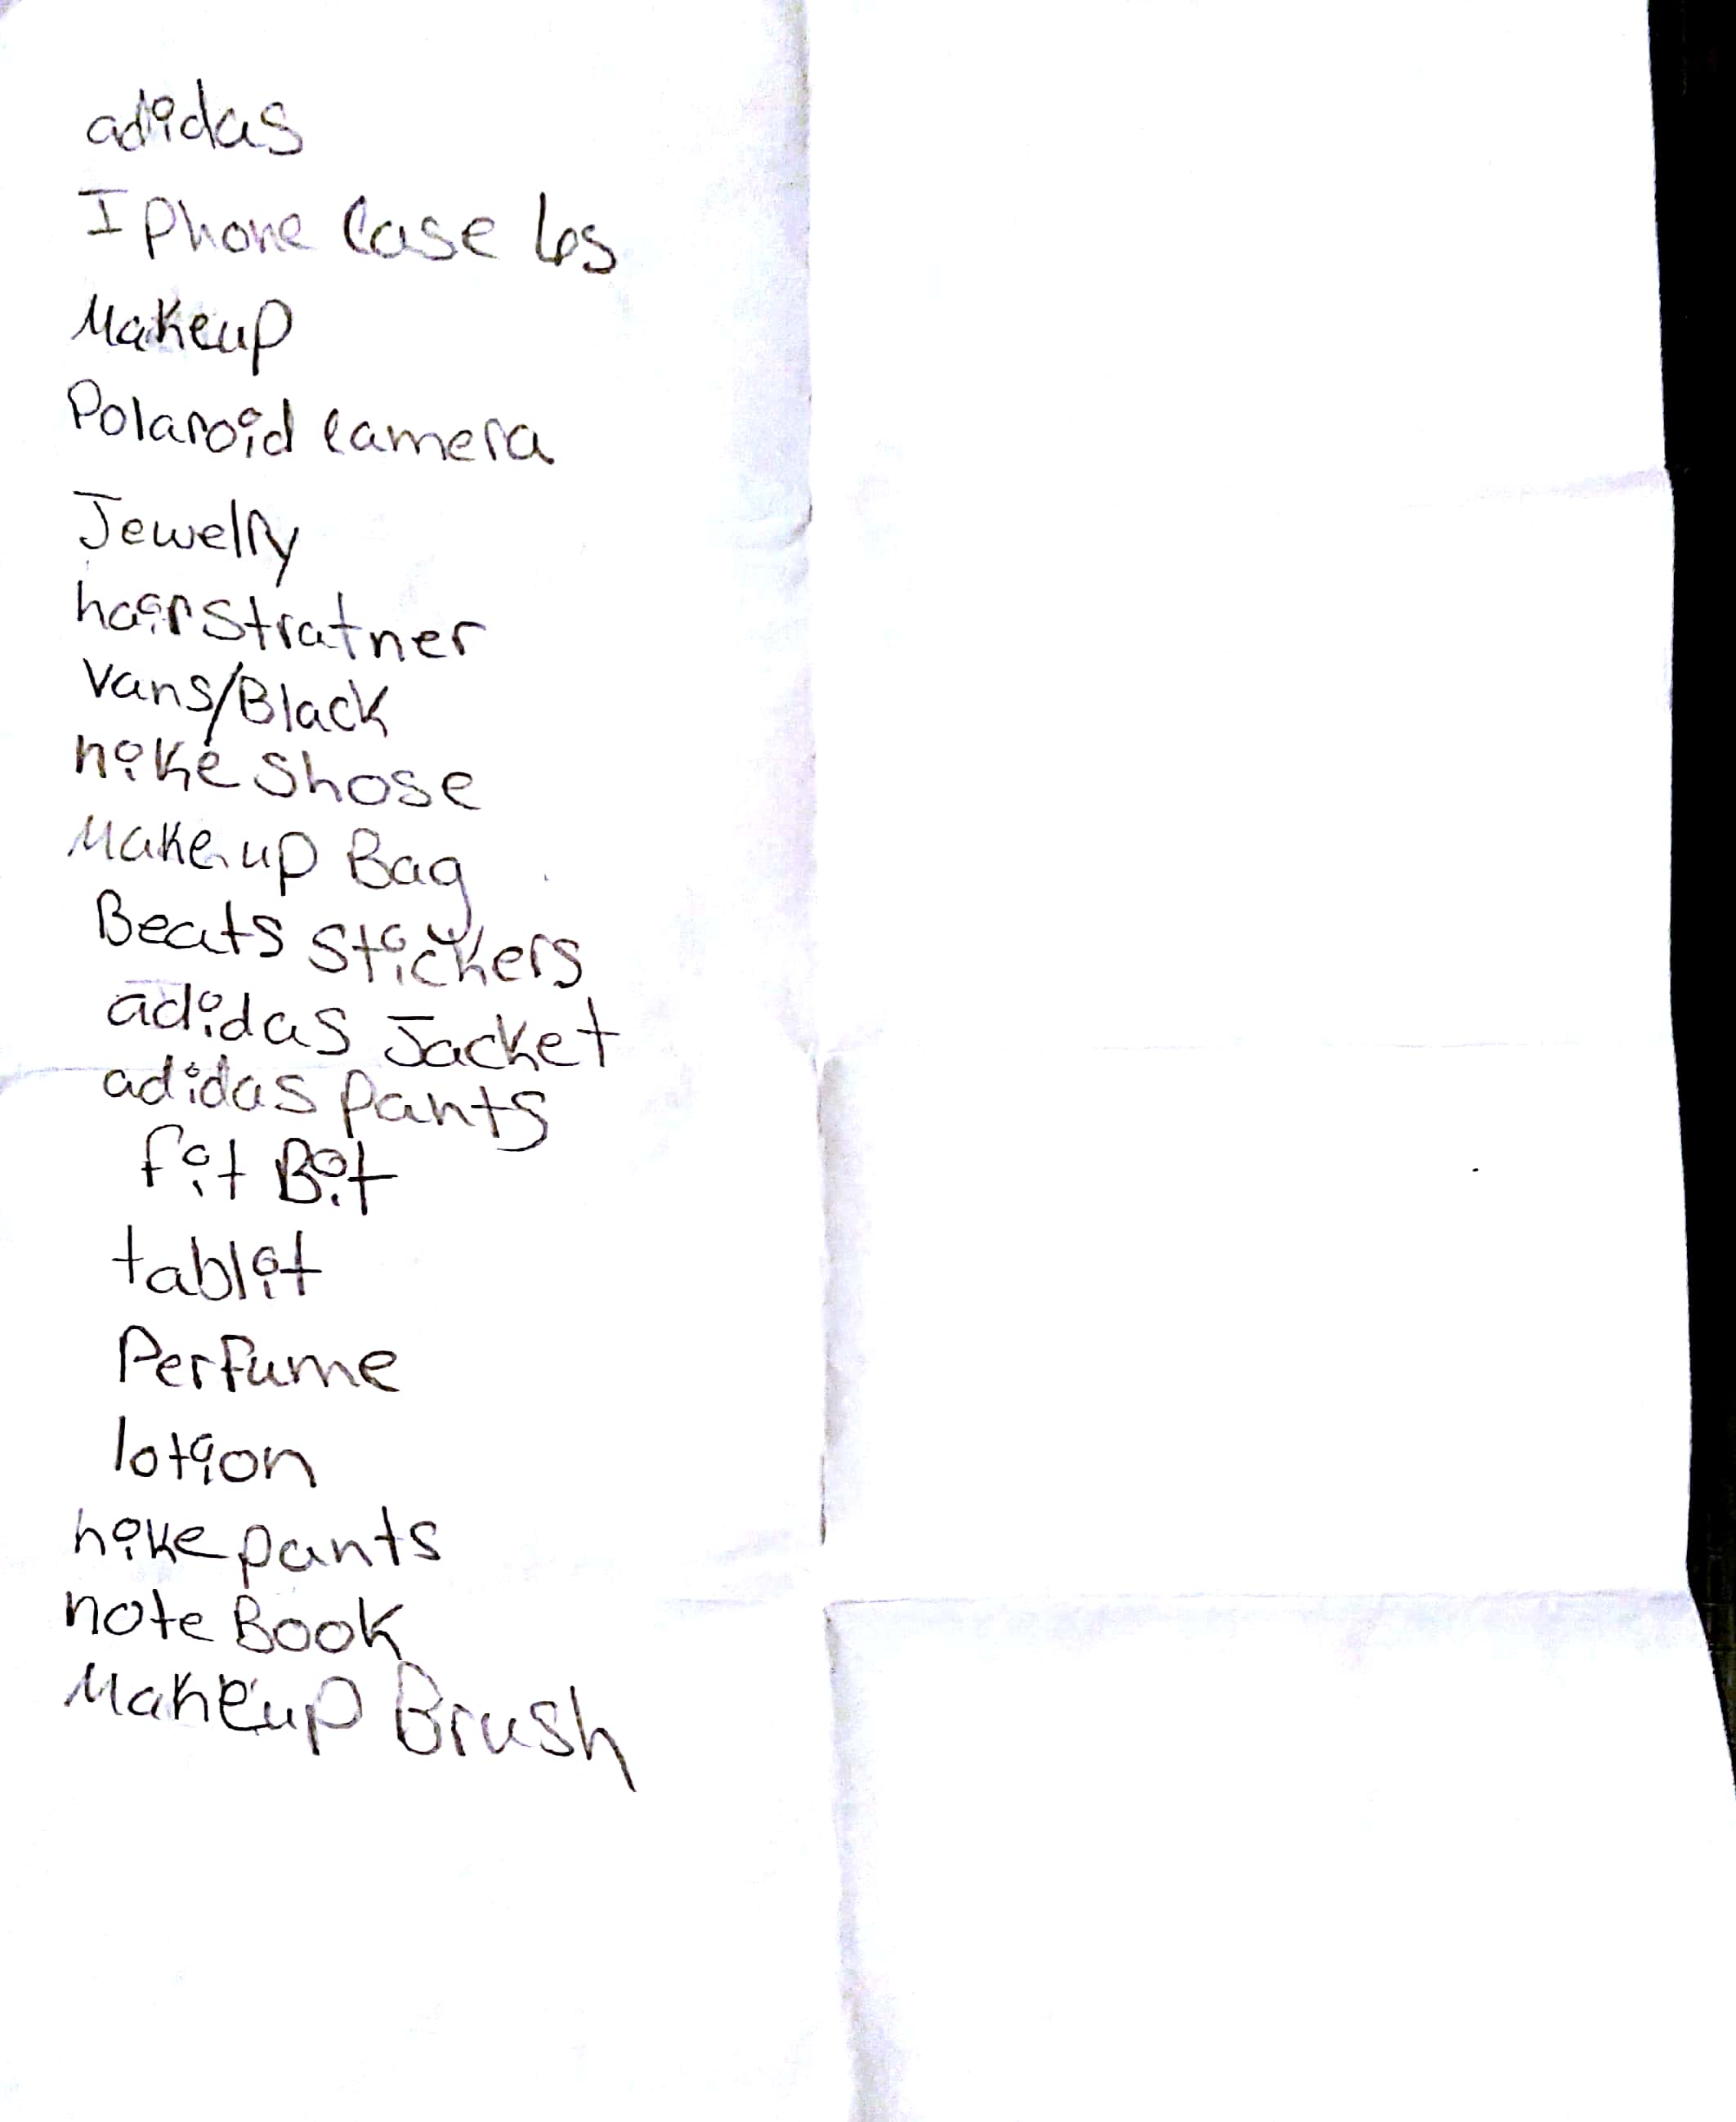 adidas
I Phone Case 6s
Makeup
Polaroid camera
Jewelry
hairstratner
Vans/Black
nike Shose
Makeup Bag
Beats Stickers
adidas Jacket
adidas Pants
fit Bit
tablit
Perfume
lotion
nike pants
note Book
Makeup Brush